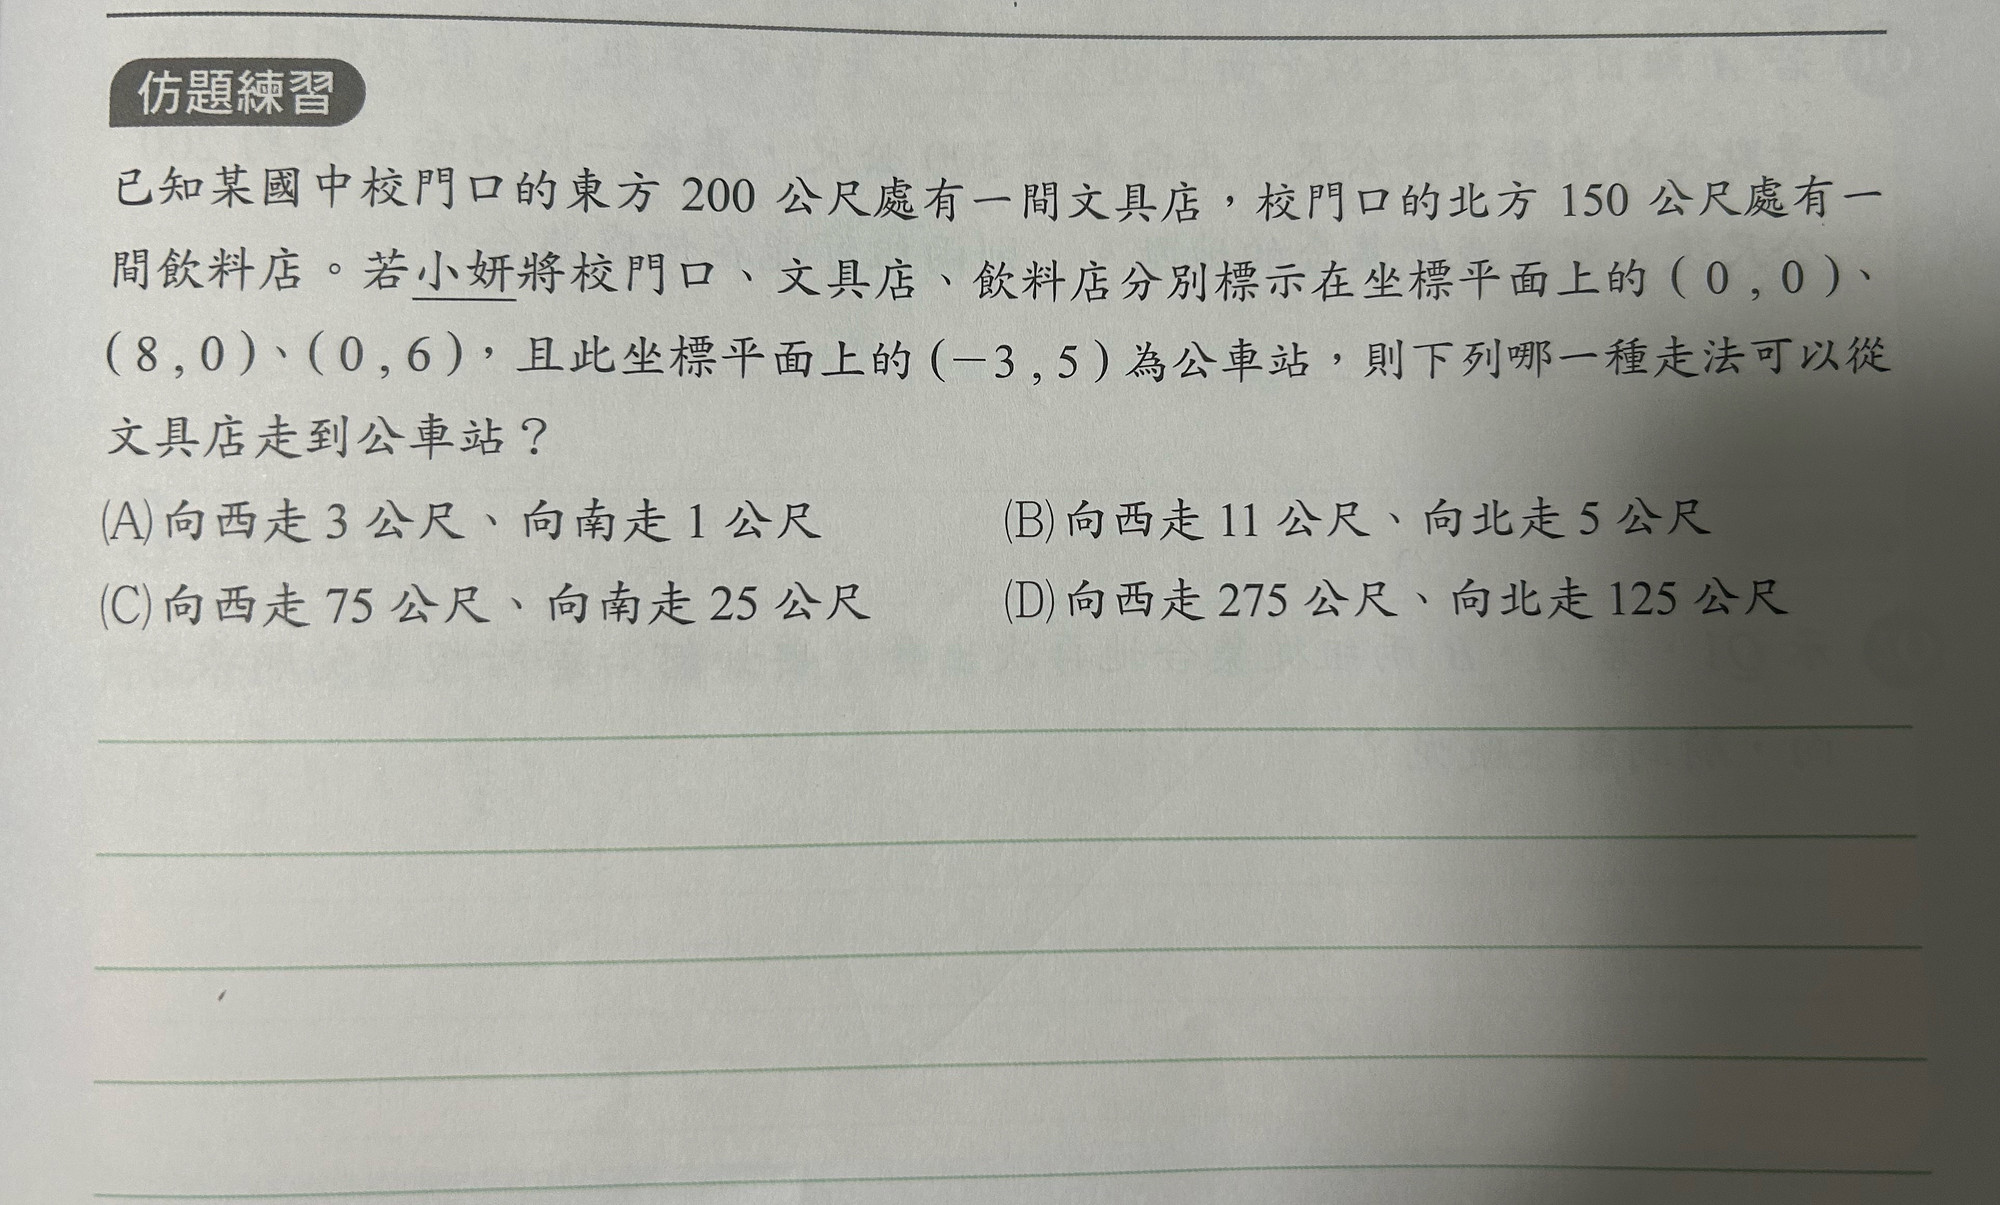 仿題練習
已知某國中校門口的東方 200 公尺處有一間文具店，校門口的北方 150 公尺處有一
間飲料店。若小妍將校門口、文具店、飲料店分別標示在坐標平面上的（0 , 0）、
（8 , 0）、（0 , 6），且此坐標平面上的（－3 , 5）為公車站，則下列哪一種走法可以從
文具店走到公車站？
(A)向西走 3 公尺、向南走 1 公尺 (B)向西走 11 公尺、向北走 5 公尺
(C)向西走 75 公尺、向南走 25 公尺 (D)向西走 275 公尺、向北走 125 公尺